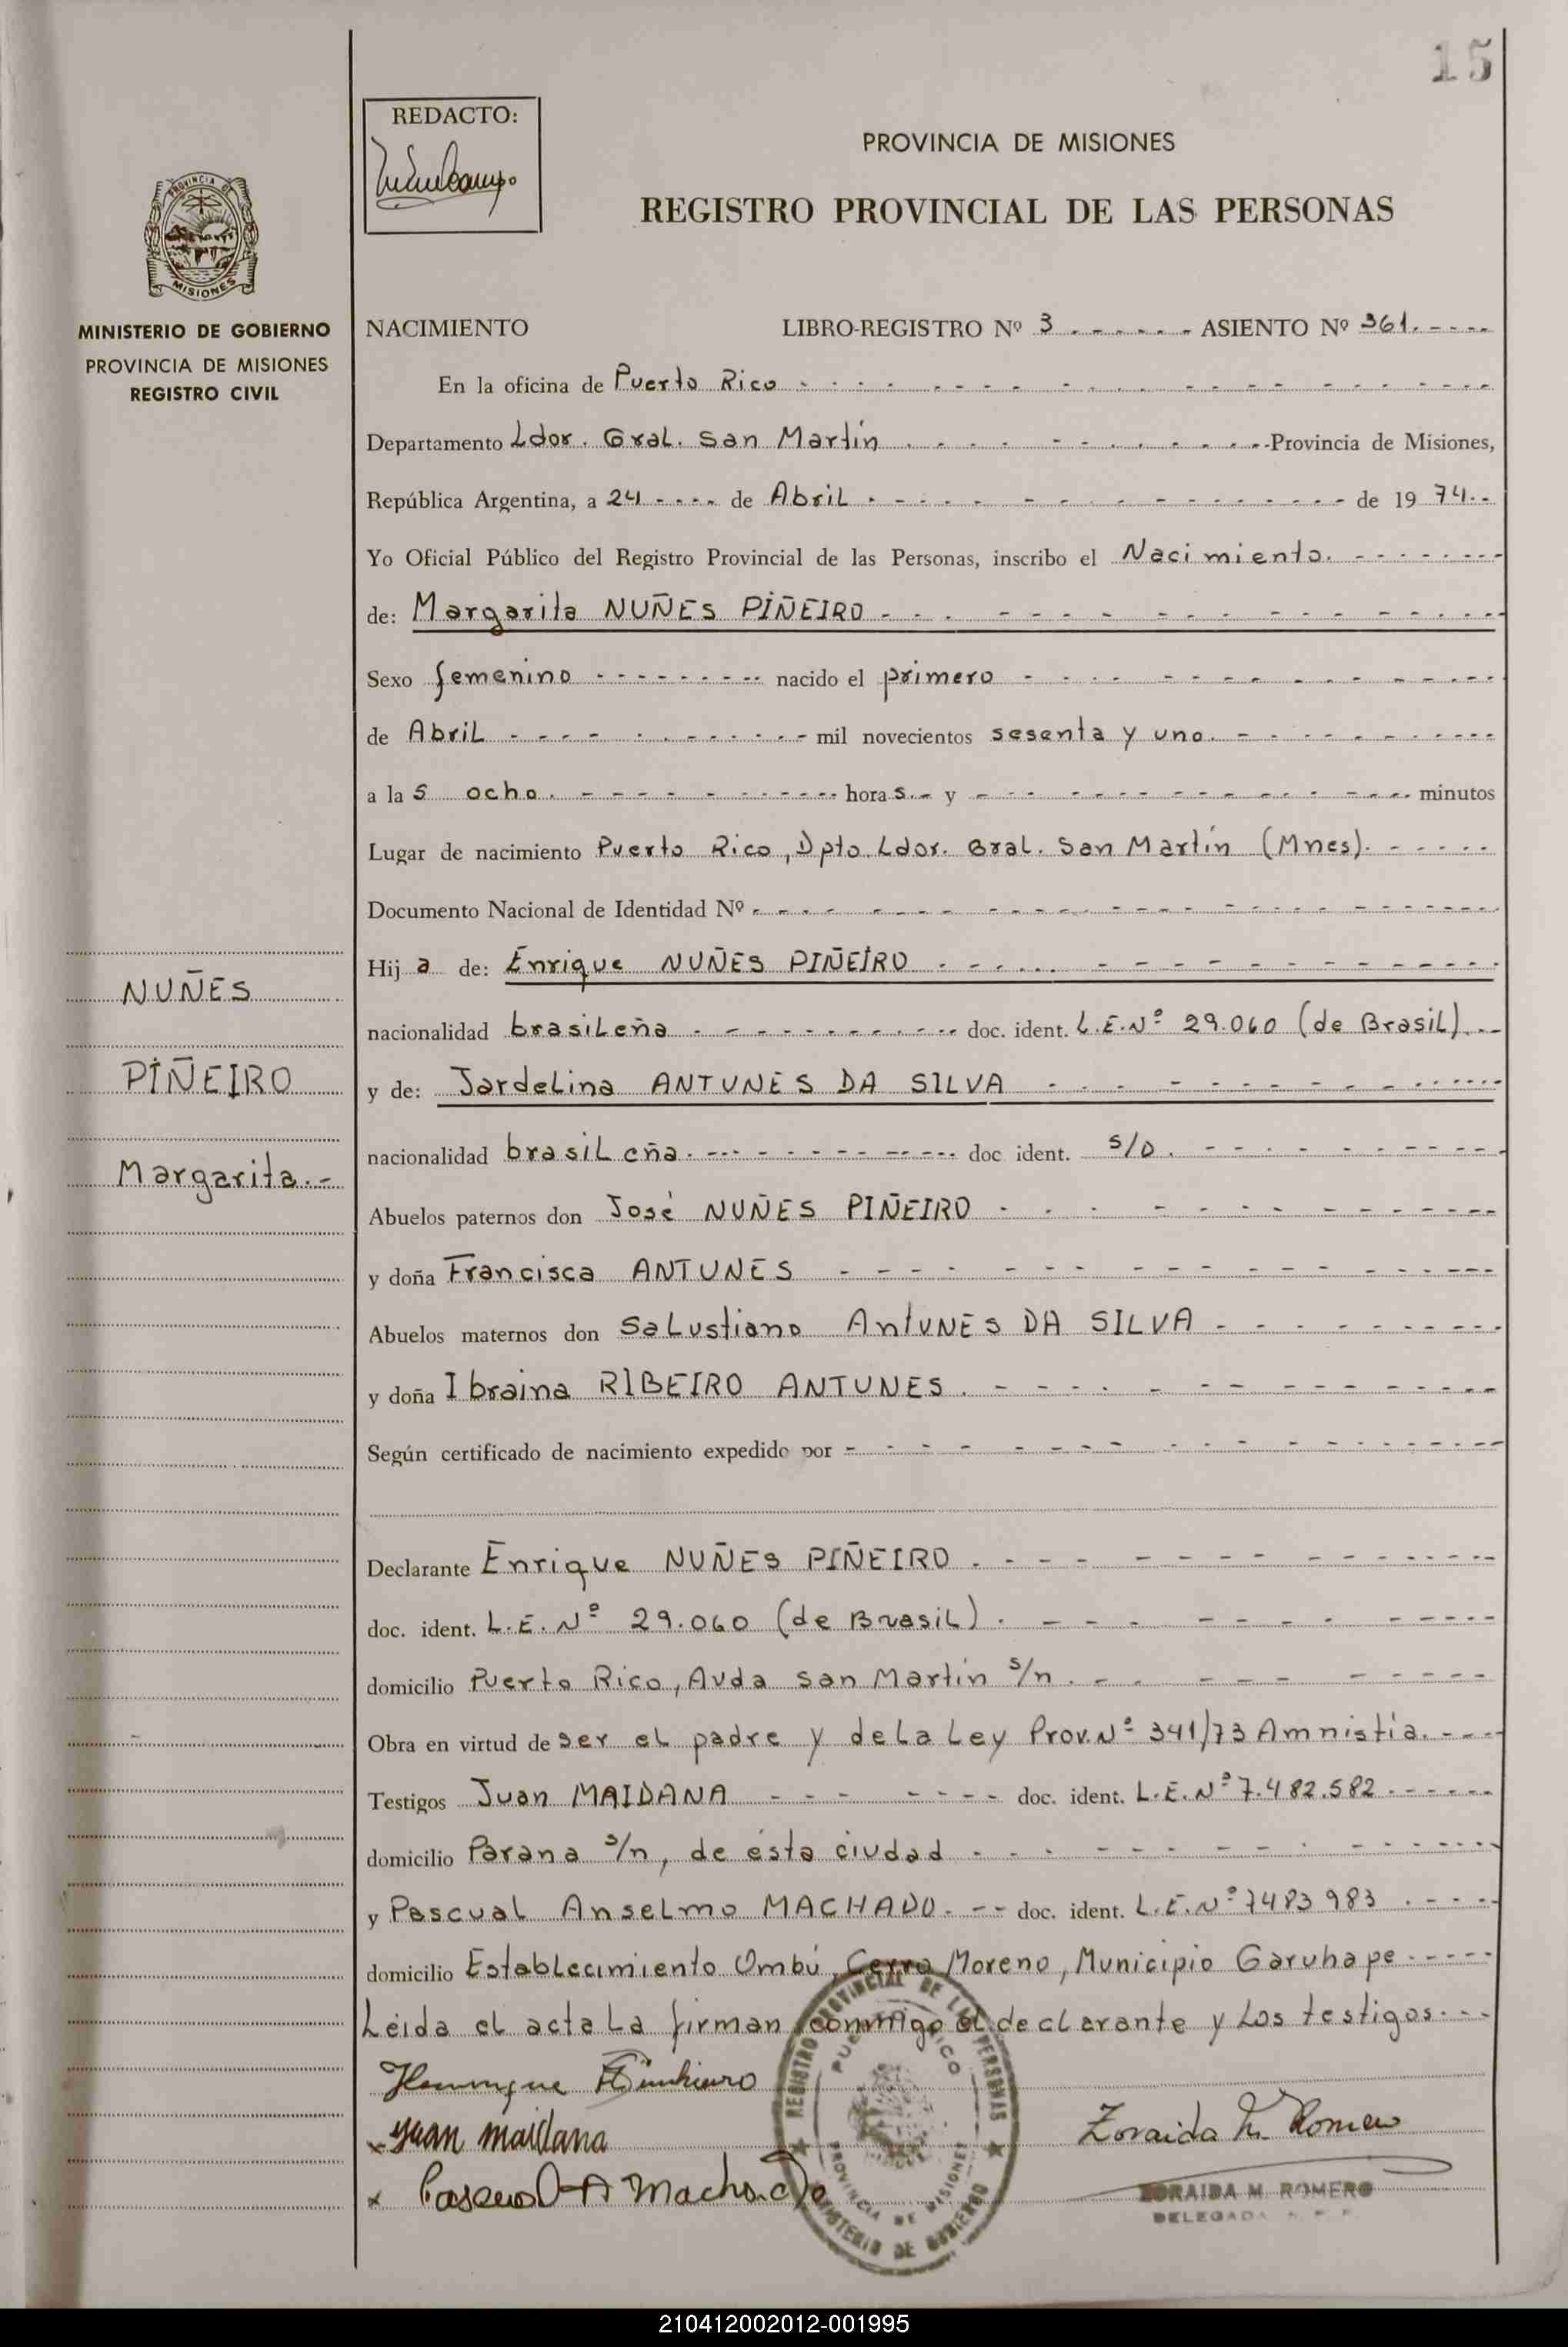 15
REDACTO:
PROVINCIA DE MISIONES
REGISTRO PROVINCIAL DE LAS PERSONAS
PROVINCIA DE
MISIONES
MINISTERIO DE GOBIERNO
PROVINCIA DE MISIONES
REGISTRO CIVIL
NUÑES
PIÑEIRO
Margarita.-
NACIMIENTO LIBRO-REGISTRO Nº 3 ASIENTO Nº 361.
En la oficina de Puerto Rico
Departamento Ldor. Gral. San Martín Provincia de Misiones,
República Argentina, a 24 de Abril de 1974.
Yo Oficial Público del Registro Provincial de las Personas, inscribo el Nacimiento.
de: Margarita NUÑES PIÑEIRO
Sexo femenino nacido el primero
de Abril mil novecientos sesenta y uno.
a las ocho. horas.- y minutos
Lugar de nacimiento Puerto Rico, Dpto. Ldor. Gral. San Martín (Mnes).
Documento Nacional de Identidad Nº
Hija de: Enrique NUÑES PIÑEIRO
nacionalidad brasileña doc. ident. L.E.Nº 29.060 (de Brasil).
y de: Jardelina ANTUNES DA SILVA
nacionalidad brasileña. doc ident. s/D.
Abuelos paternos don José NUÑES PIÑEIRO
y doña Francisca ANTUNES
Abuelos maternos don Salustiano AntUNES DA SILVA
y doña Ibraina RIBEIRO ANTUNES.
Según certificado de nacimiento expedido por
Declarante Enrique NUÑES PIÑEIRO.
doc. ident. L.E. Nº 29.060 (de Brasil).
domicilio Puerto Rico, Avda San Martín s/n.
Obra en virtud de ser el padre y de la Ley Prov. Nº 341/73 Amnistía.
Testigos Juan MAIDANA doc. ident. L.E.Nº 7.482.582
domicilio Parana s/n, de ésta ciudad
y Pascual Anselmo MACHADO. doc. ident. L.E.Nº 7483983
domicilio Establecimiento Ombú, Cerro Moreno, Municipio Garuhape
Leida el acta la firman conmigo el declarante y los testigos
x Juan Maidana
x Pascual A Machado
Zoraida M. Romero
ZORAIDA M. ROMERO
DELEGADA
REGISTRO PROVINCIAL DE LAS PERSONAS
PUERTO RICO
PROVINCIA DE MISIONES
MINISTERIO DE GOBIERNO
210412002012-001995